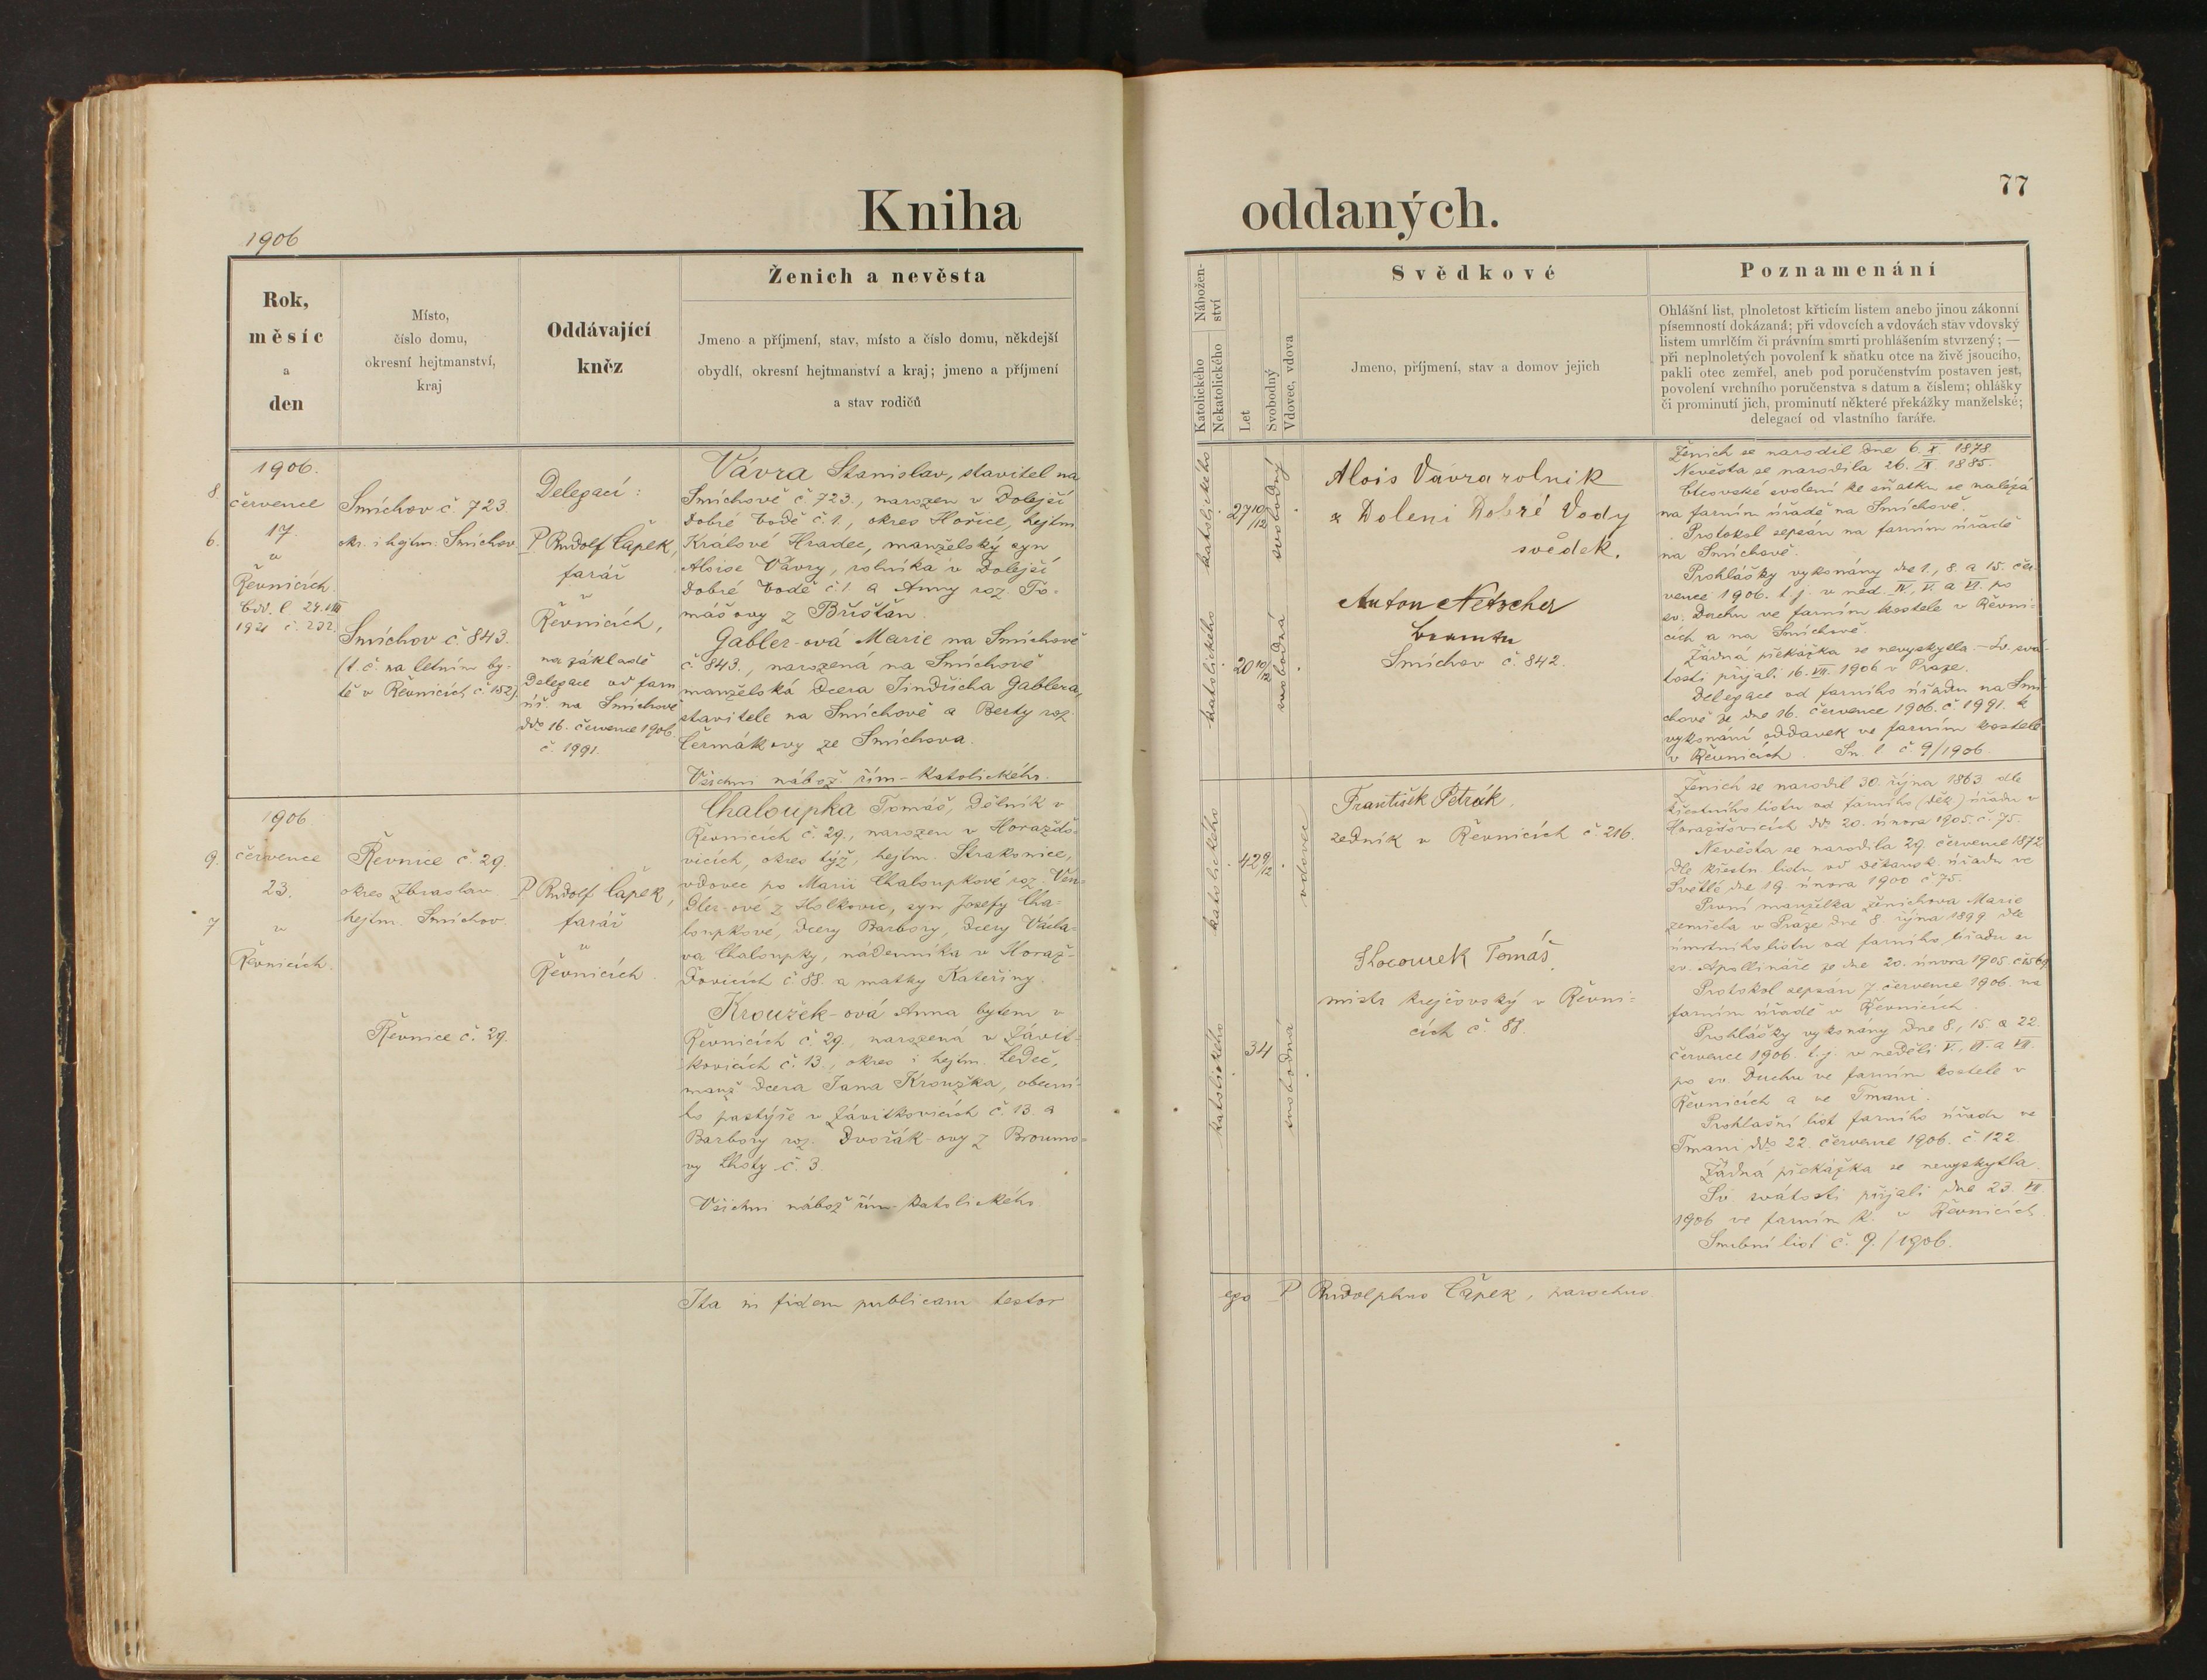 Kniha
oddaných.
77
1906
Rok,
měsíc
a
den
Místo,
číslo domu,
okresní hejtmanství,
kraj
Oddávající
kněz
Ženich a nevěsta
Jmeno a příjmení, stav, místo a číslo domu, někdejší
obydlí, okresní hejtmanství a kraj; jmeno a příjmení
a stav rodičů
Nábožen-
ství
Katolického
Nekatolického
Let
Svobodný
Vdovec, vdova
Svědkové
Jmeno, příjmení, stav a domov jejich
Poznamenání
Ohlášní list, plnoletost křticím listem anebo jinou zákonní
písemností dokázaná; při vdovcích a vdovách stav vdovský
listem umrlčím či právním smrti prohlášením stvrzený; —
při neplnoletých povolení k sňatku otce na živě jsoucího,
pakli otec zemřel, aneb pod poručenstvím postaven jest,
povolení vrchního poručenstva s datum a číslem; ohlášky
či prominutí jich, prominutí některé překážky manželské;
delegací od vlastního faráře.
8.
6.
1906.
července
17.
v
Řevnicích.
Odd. l. 24. VIII
1921 č. 232.
Smíchov č. 723.
okr. i hejtm. Smíchov
Smíchov č. 843.
(t. č. na letním by-
tě v Řevnicích č. 152)
Delegací:
P Rudolf Čapek,
farář
v
Řevnicích,
na základě
Delegace od farn
úř. na Smíchově
ddo 16. července 1906.
č. 1991.
Vávra Stanislav, stavitel na
Smíchově č. 723., narozen v Dolejší
Dobré Vodě č. 1., okres Hořice, hejtm
Králové Hradec, manželský syn
Aloise Vávry, rolníka v Dolejší
Dobré Vodě č. 1 a Anny roz. To-
mášovy z Bříšťan.
Gabler-ová Marie na Smíchově
č. 843., narozená na Smíchově
manželská dcera Jindřicha Gablera,
stavitele na Smíchově a Berty roz.
Čermákovy ze Smíchova.
Všichni nábož. řím-katolického.
katolického
27 10/12
svobodný
katolického
20 10/12
svobodná
Alois Vávra rolník
z Dolení Dobré Vody
svědek.
Anton Netscher
Smíchov č. 842.
Ženich se narodil dne 6. X. 1878.
Nevěsta se narodila 26. IX 1885.
Otcovské svolení ke sňatku se nalézá
na farním úřadě na Smíchově.
Protokol sepsán na farním úřadě
na Smíchově.
Prohlášky vykonány dne 1., 8. a 15. čer-
vence 1906. t. j. v ned. IV., V. a VI. po
sv. Duchu ve farním kostele v Řevni-
cích a na Smíchově.
Žádná překážka se nevyskytla. - Sv. svá-
tosti přijali 16. VII. 1906 v Praze.
Delegace od farního úřadu na Smí-
chově ze dne 16. července 1906. č. 1991. k
vykonání oddavek ve farním kostele
v Řevnicích. Sn. l. č. 9/1906.
9.
7
1906
července
23.
v
Řevnicích.
Řevnice č. 29.
okres Zbraslav
hejtm. Smíchov.
Řevnice č. 29.
P Rudolf Čapek,
farář
v
Řevnicích.
Chaloupka Tomáš, dělník v
Řevnicích č. 29., narozen v Horaždo-
vicích, okres týž, hejtm. Strakonice,
vdovec po Marii Chaloupkové roz. Ven-
gler-ové z Holkovic, syn Josefy Cha-
loupkové, dcery Barbory, dcery Václa-
va Chaloupky, nádenníka v Horaž-
ďovicích č. 88. a matky Kateřiny.
Kroužek-ová Anna bytem v
Řevnicích č. 29, narozená v Závit-
kovicích č. 13., okres i hejtm. Ledeč,
manž dcera Jana Kroužka, obecní-
ho pastýře v Závitkovicích č. 13. a
Barbory roz. Dvořák-ovy z Broumo-
vy Lhoty č. 3.
Všichni nábož řím-katolického.
katolického
42 9/12
vdovec
katolického
34
svobodná
František Petrák,
zedník v Řevnicích č. 216.
Tomáš
mistr krejčovský v Řevni-
cích č. 88.
Ženich se narodil 30. října 1863 dle
křestního listu od farního (děk) úřadu v
Horažďovicích ddo 20. února 1905. č. 75.
Nevěsta se narodila 29. července 1872
dle křestn. listu od děkansk. úřadu ve
Světlé dne 19. února 1900 č 75.
První manželka ženichova Marie
zemřela v Praze dne 8. října 1899 dle
úmrtního listu od farního úřadu u
sv. Apollináře ze dne 20. února 1905.
Protokol sepsán 7. července 1906. na
farním úřadě v Řevnicích.
Prohlášky vykonány dne 8., 15. a 22.
července 1906. t. j. v neděli V., VI. a VII.
po sv. Duchu ve farním kostele v
Řevnicích a ve Tmani.
Prohlašní list farního úřadu ve
Tmani ddo 22. července 1906. č. 122.
Žádná překážka se nevyskytla.
Sv. svátosti přijali dne 23. VII.
1906 ve farním k. v Řevnicích.
Snubní list č. 9./1906.
Ita in fidem publicam testor
ego P Rudolphus Čapek, parochus.